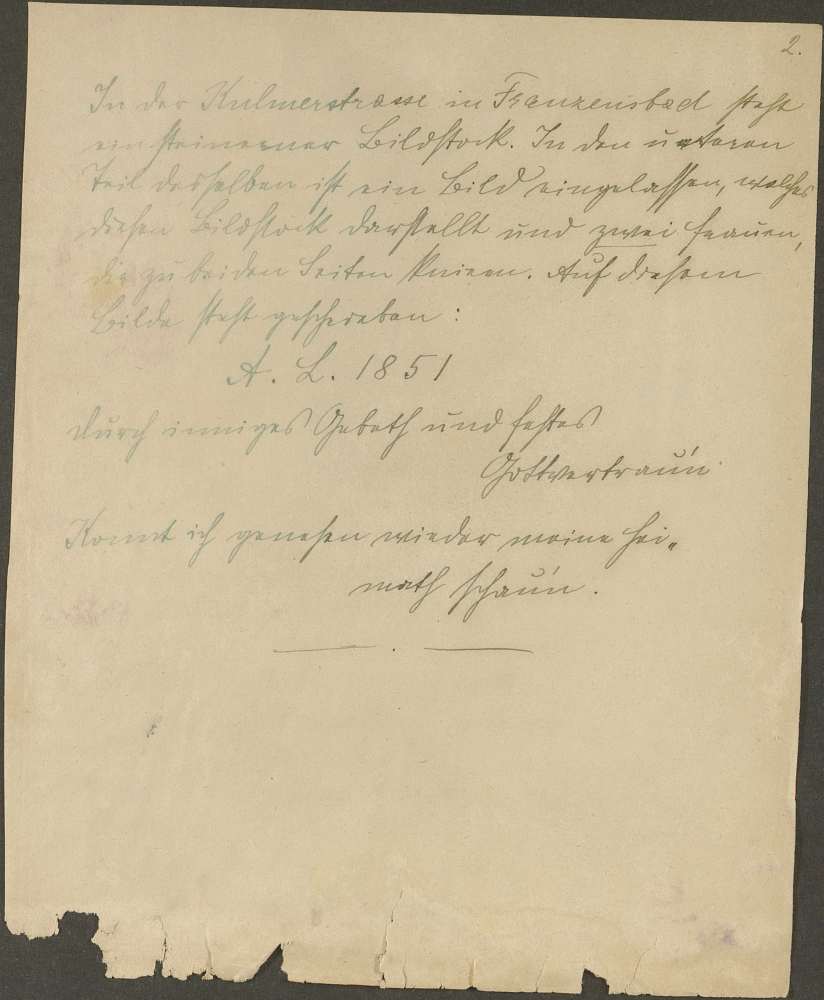 2.
In der Kulmerstrasse in Franzensbad steht
ein steinerner Bildstock. In den unteren
Teil desselben ist ein Bild eingelassen, welches
diesen Bildstock darstellt und zwei Frauen,
die zu beiden Seiten knieen. Auf diesem
Bilde steht geschrieben:
A. L. 1851
Durch inniges Gebeth und festes
Gottvertrau'n
Konnt ich genesen wieder meine Hei-
math schau'n.